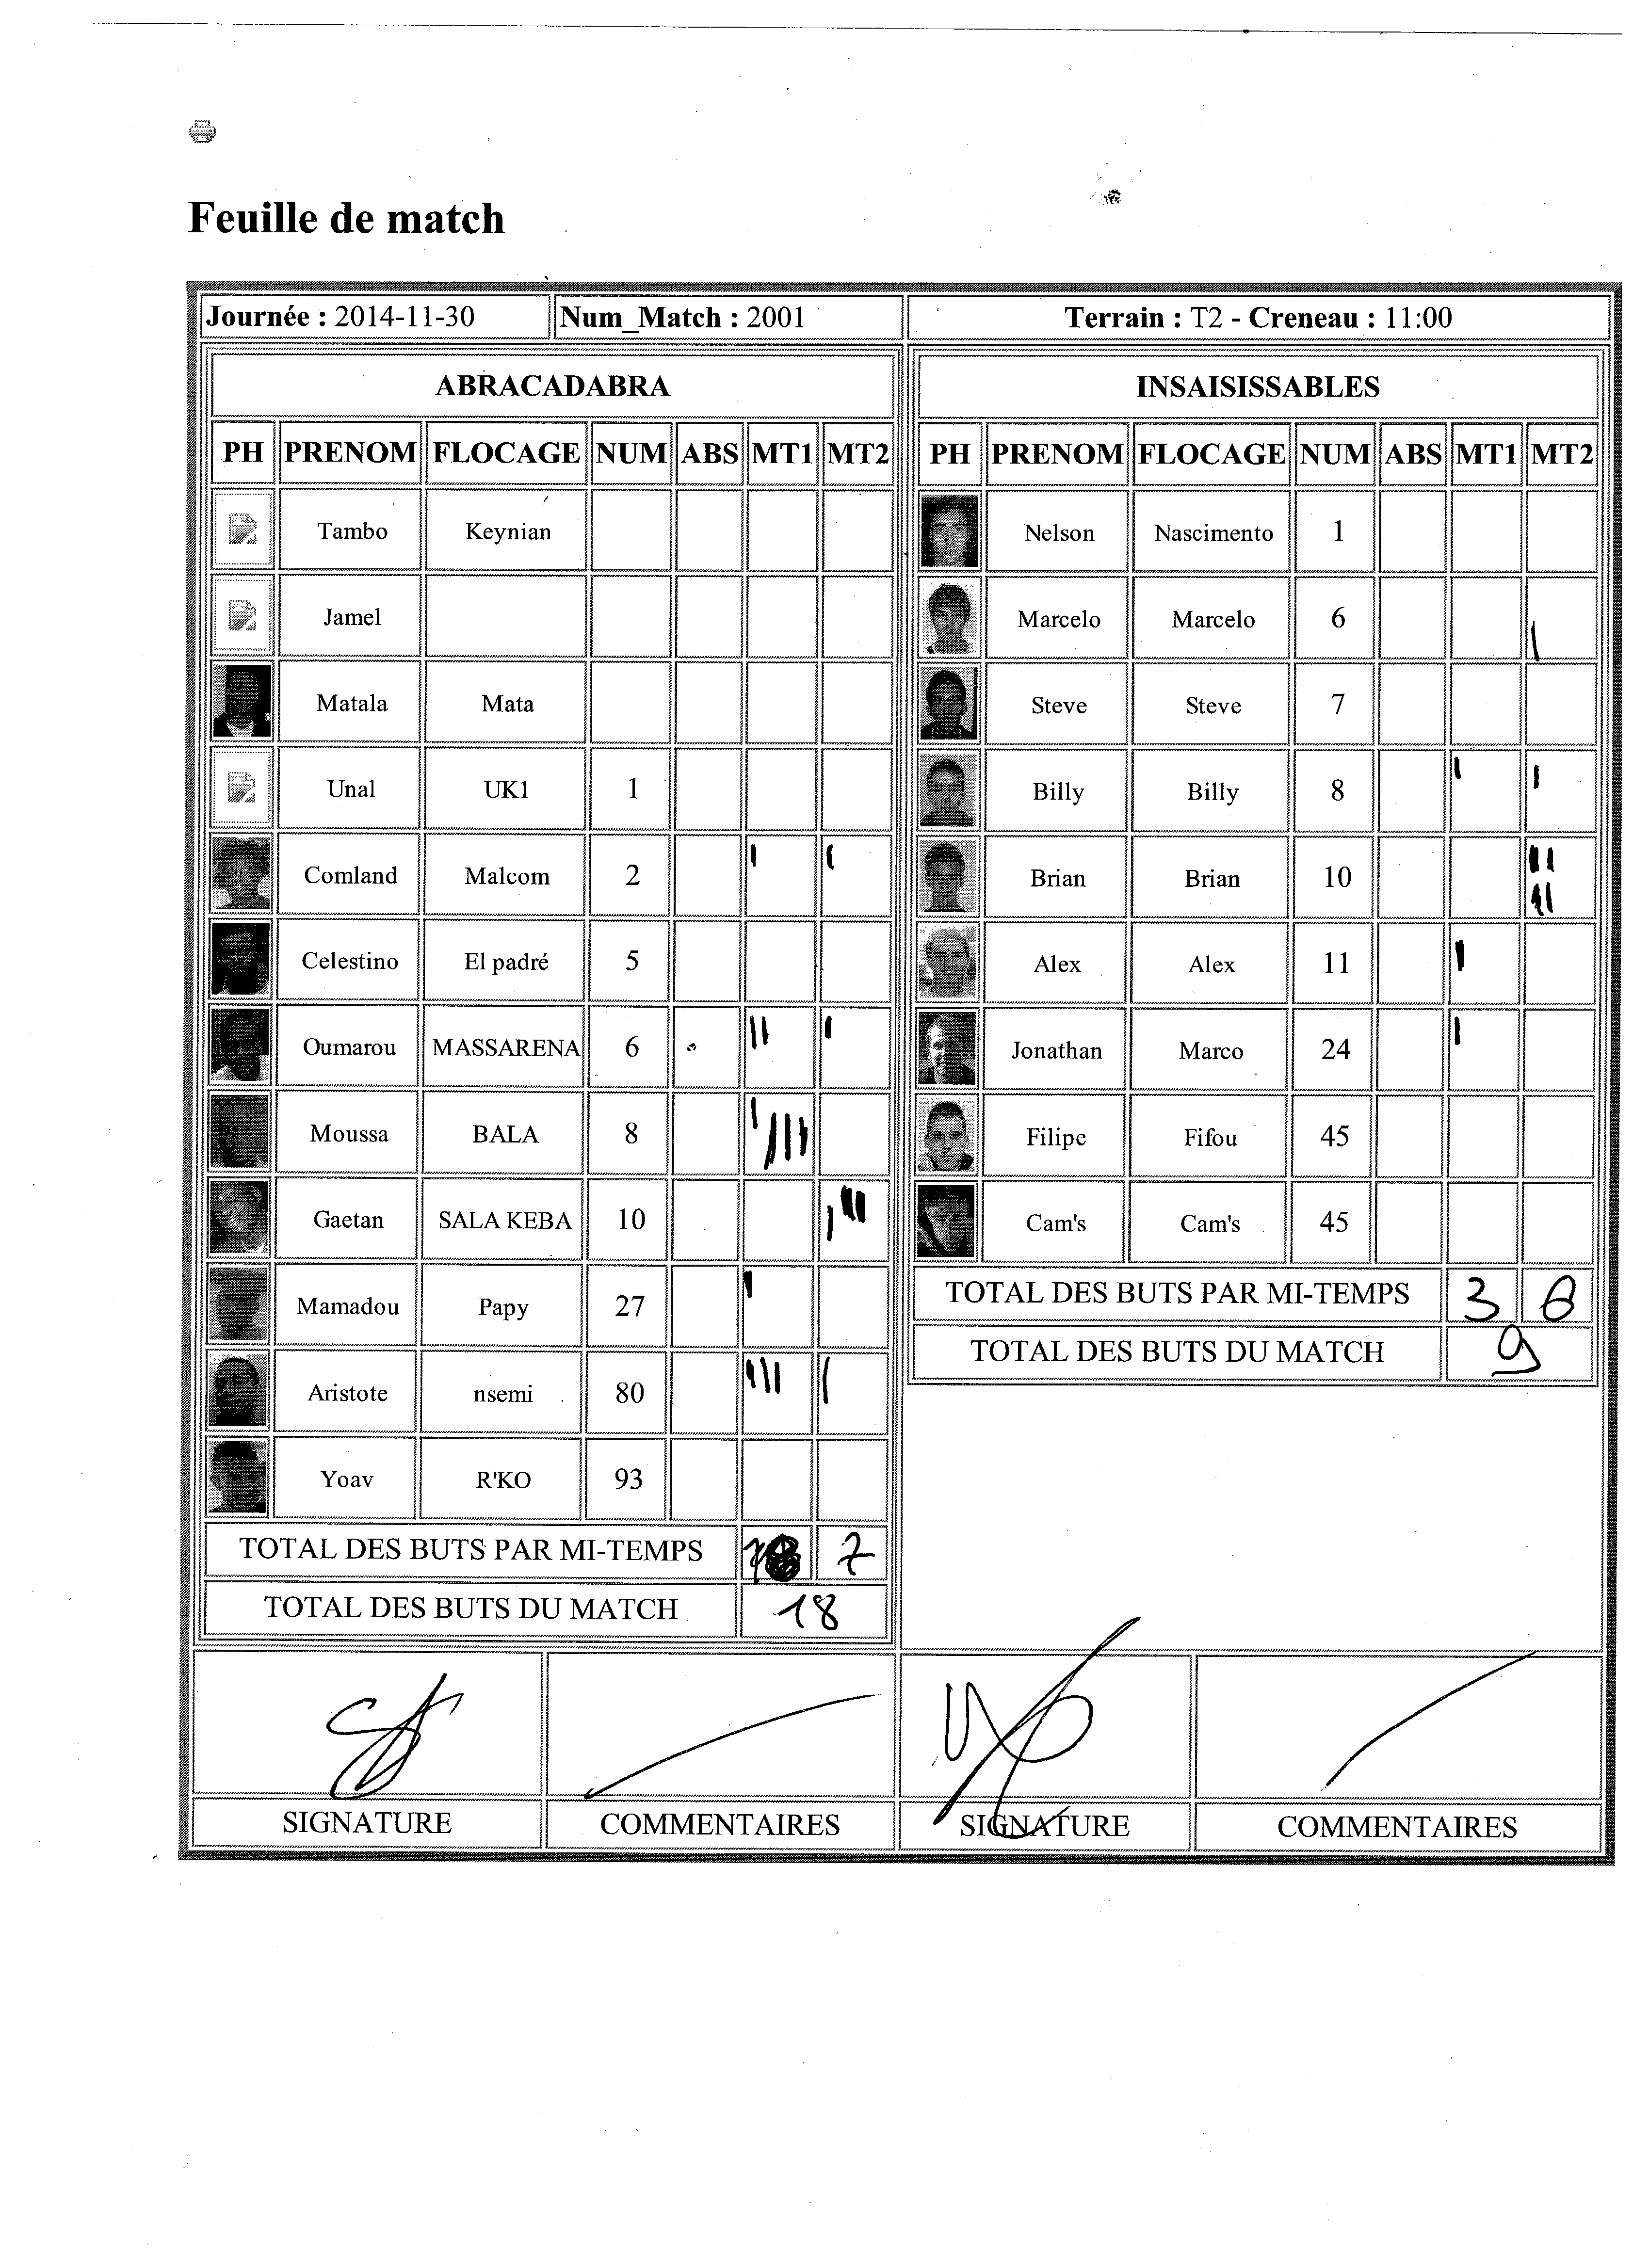 Feuille de match
Journée : 2014-11-30 Num_Match : 2001 Terrain : T2 - Creneau : 11:00
ABRACADABRA
PH PRENOM FLOCAGE NUM ABS MT1 MT2
Tambo Keynian
Jamel
Matala Mata
Unal UK1 1
Comland Malcom 2
Celestino El padré 5
Oumarou MASSARENA 6
Moussa BALA 8
Gaetan SALA KEBA 10
Mamadou Papy 27
Aristote nsemi 80
Yoav R'KO 93
TOTAL DES BUTS PAR MI-TEMPS 7
TOTAL DES BUTS DU MATCH 18
INSAISISSABLES
PH PRENOM FLOCAGE NUM ABS MT1 MT2
Nelson Nascimento 1
Marcelo Marcelo 6
Steve Steve 7
Billy Billy 8
Brian Brian 10
Alex Alex 11
Jonathan Marco 24
Filipe Fifou 45
Cam's Cam's 45
TOTAL DES BUTS PAR MI-TEMPS 3 6
TOTAL DES BUTS DU MATCH 9
SIGNATURE COMMENTAIRES SIGNATURE COMMENTAIRES